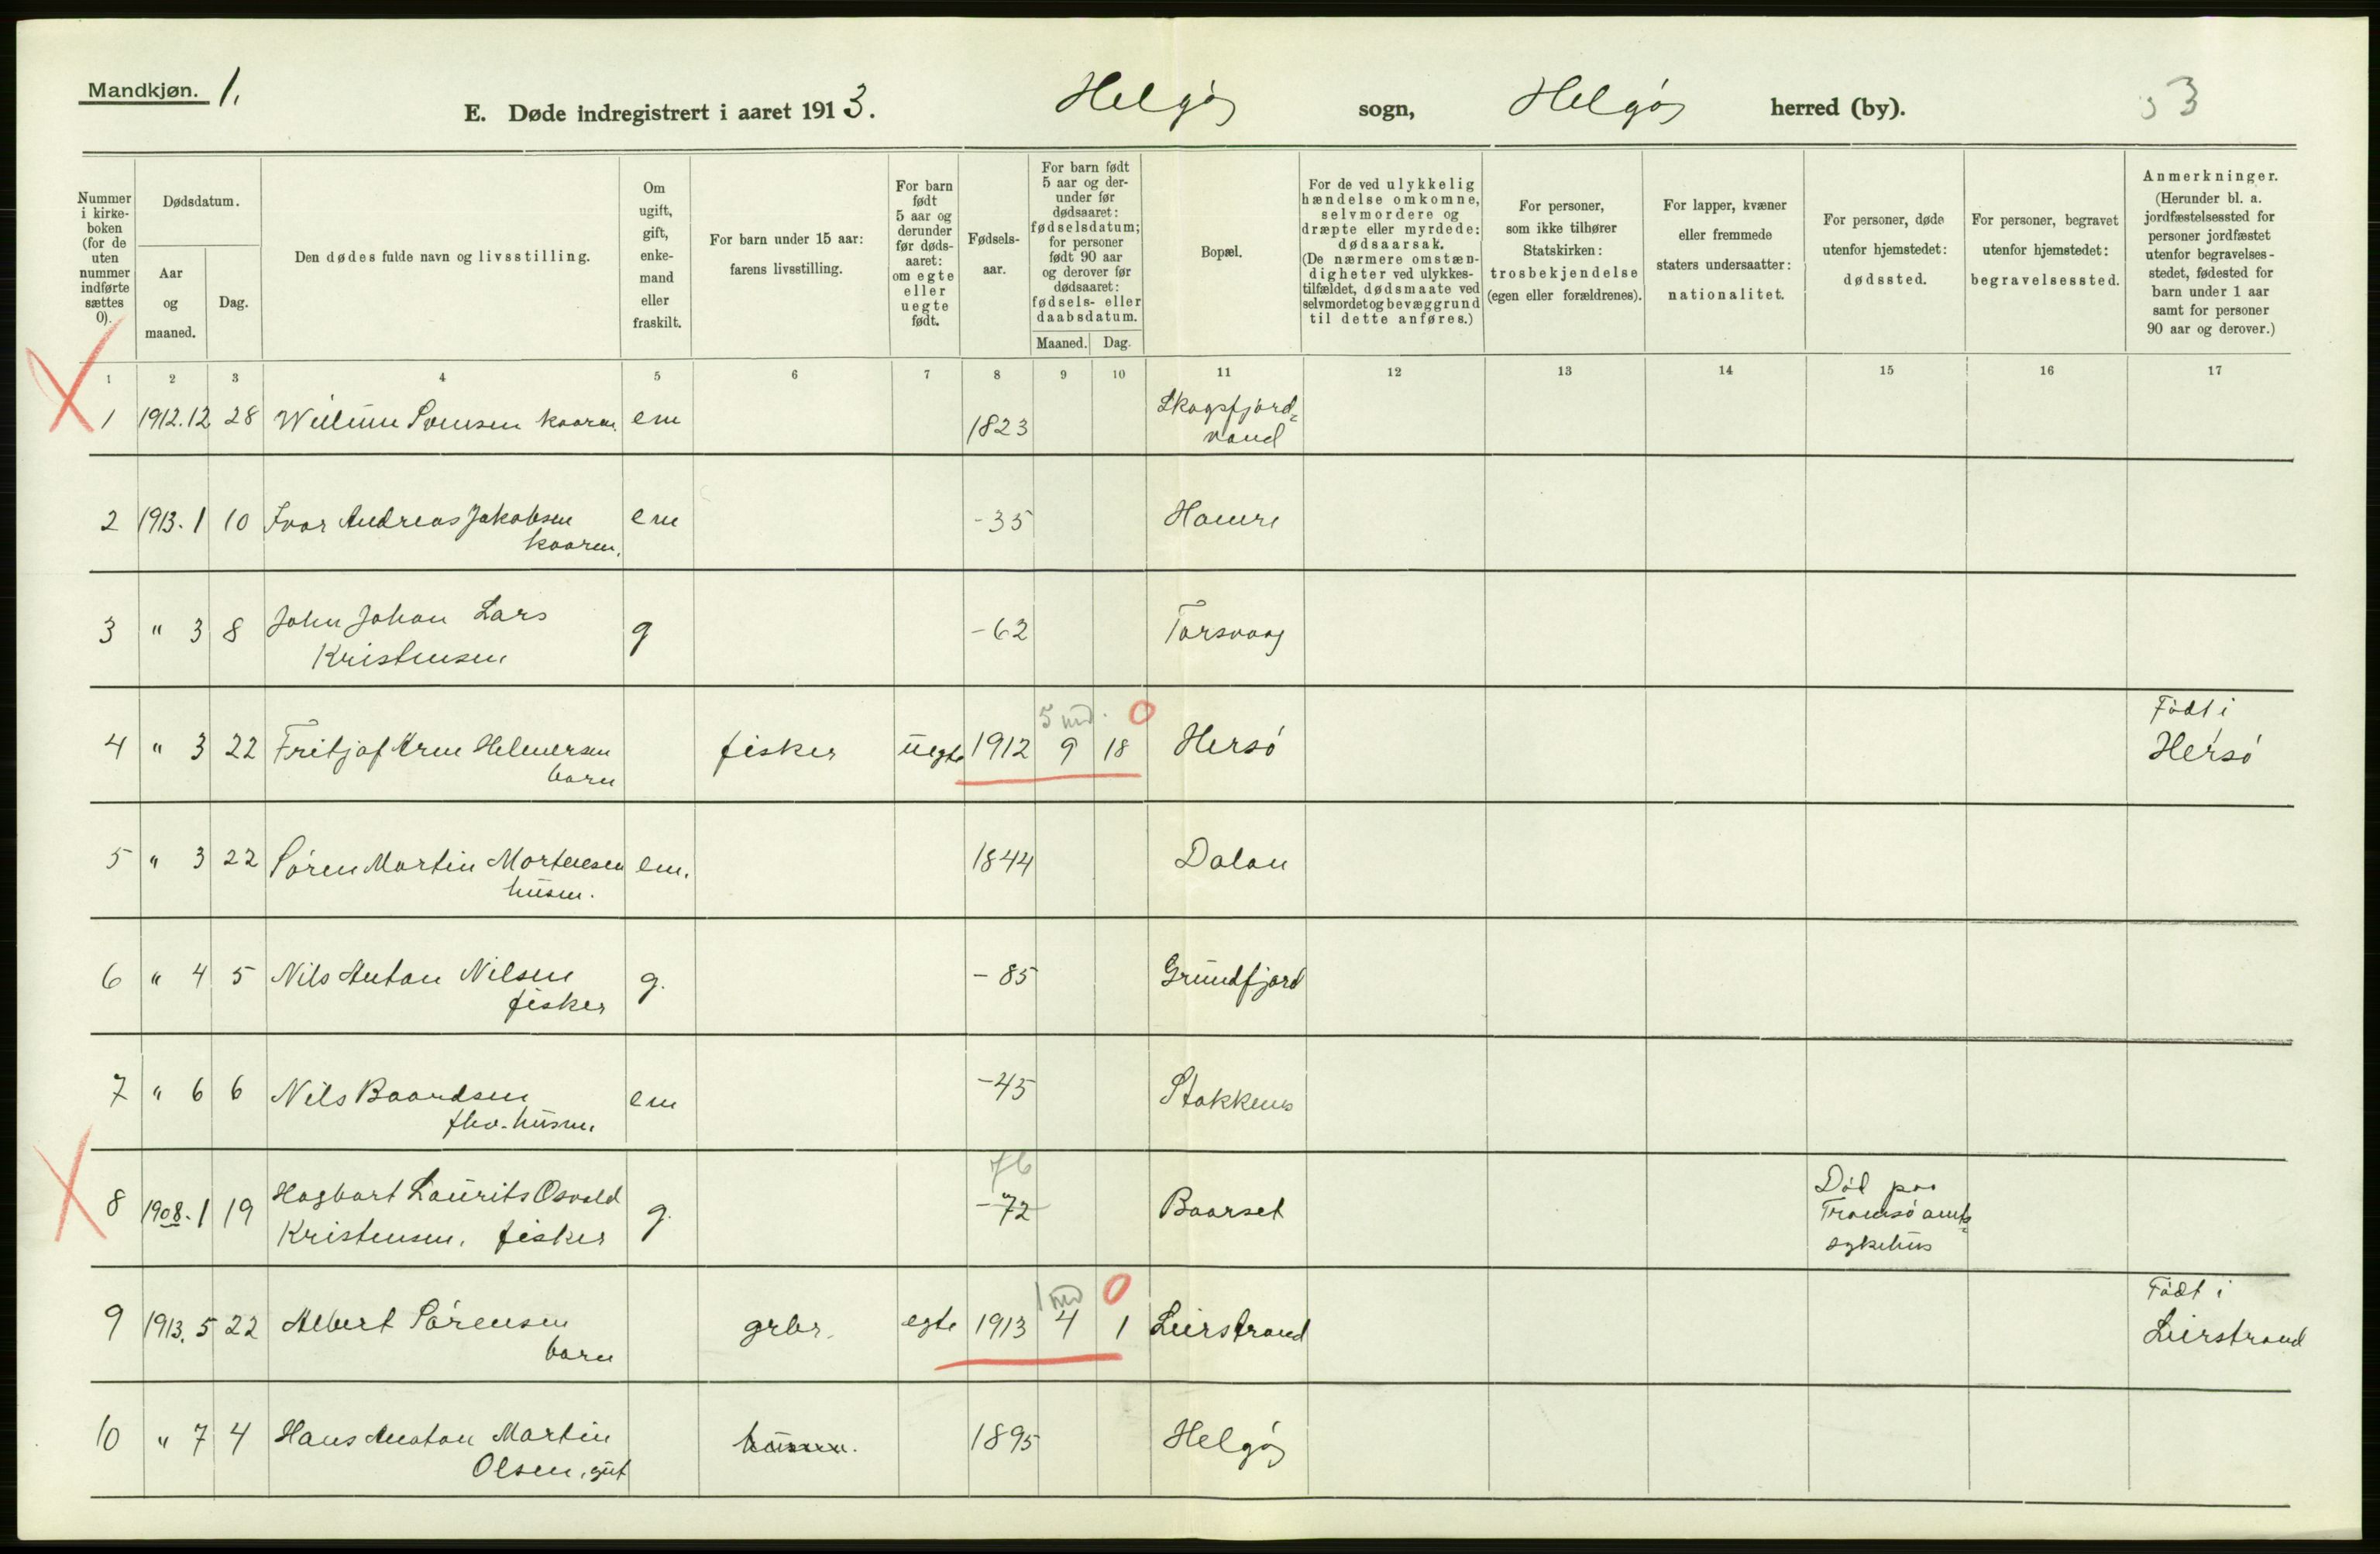 Mandkjøn. 1.
E. Døde indregistrert i aaret 1913. Helgøy sogn, Helgøy herred (by). 3
Nummer i kirke-boken (for de uten nummer indførte sættes 0).
Dødsdatum.
Aar og maaned.
Dag.
Den dødes fulde navn og livsstilling.
Om ugift, gift, enke-mand eller fraskilt.
For barn under 15 aar: farens livsstilling.
For barn født 5 aar og derunder før døds-aaret: om egte eller uegte født.
Fødsels-aar.
For barn født 5 aar og der-under før dødsaaret: fødselsdatum; for personer født 90 aar og derover før dødsaaret: fødsels- eller daabsdatum.
Maaned. Dag.
Bopæl.
For de ved ulykkelig hændelse omkomne, selvmordere og dræpte eller myrdede: dødsaarsak. (De nærmere omstæn-digheter ved ulykkes-tilfældet, dødsmaate ved selvmordet og bevæggrund til dette anføres.)
For personer, som ikke tilhører Statskirken: trosbekjendelse (egen eller forældrenes).
For lapper, kvæner eller fremmede staters undersaatter: nationalitet.
For personer, døde utenfor hjemstedet: dødssted.
For personer, begravet utenfor hjemstedet: begravelsessted.
Anmerkninger. (Herunder bl. a. jordfæstelsessted for personer jordfæstet utenfor begravelses-stedet, fødested for barn under 1 aar samt for personer 90 aar og derover.)
1 2 3 4 5 6 7 8 9 10 11 12 13 14 15 16 17
1 1912.12 28 kaarm. em 1823 Skogsfjord=
vand
2 1913.1 10 Ivar Andreas Jakobsen em -35 Hamre
kaarm.
3 " 3 8 John Johan Lars g -62 Torsvaag
Kristensen
5 md. 0 Født i
4 " 3 22 Fritjof Arne Helmersen fisker uegte 1912 9 18 Hersø Hersø
barn
5 " 3 22 Søren Martin Mortensen em. 1844 Dalan
husm.
6 " 4 5 Nils Anton Nilsen g. -85 Grundfjord
fisker
7 " 6 6 Nils Baardsen em -45 Stakkenes
fhv. husm.
76
8 1908.1 19 Hagbart Laurits Osvald g. -72 Baarset Død paa
Kristensen, fisker Tromsø amts=
sykehus
1 md 0 Født i
9 1913.5 22 Albert Sørensen grbr. egte 1913 4 1 Leirstrand Leirstrand
barn
10 " 7 4 Hans Anton Martin husm. 1895 Helgøy
Olsen, gut